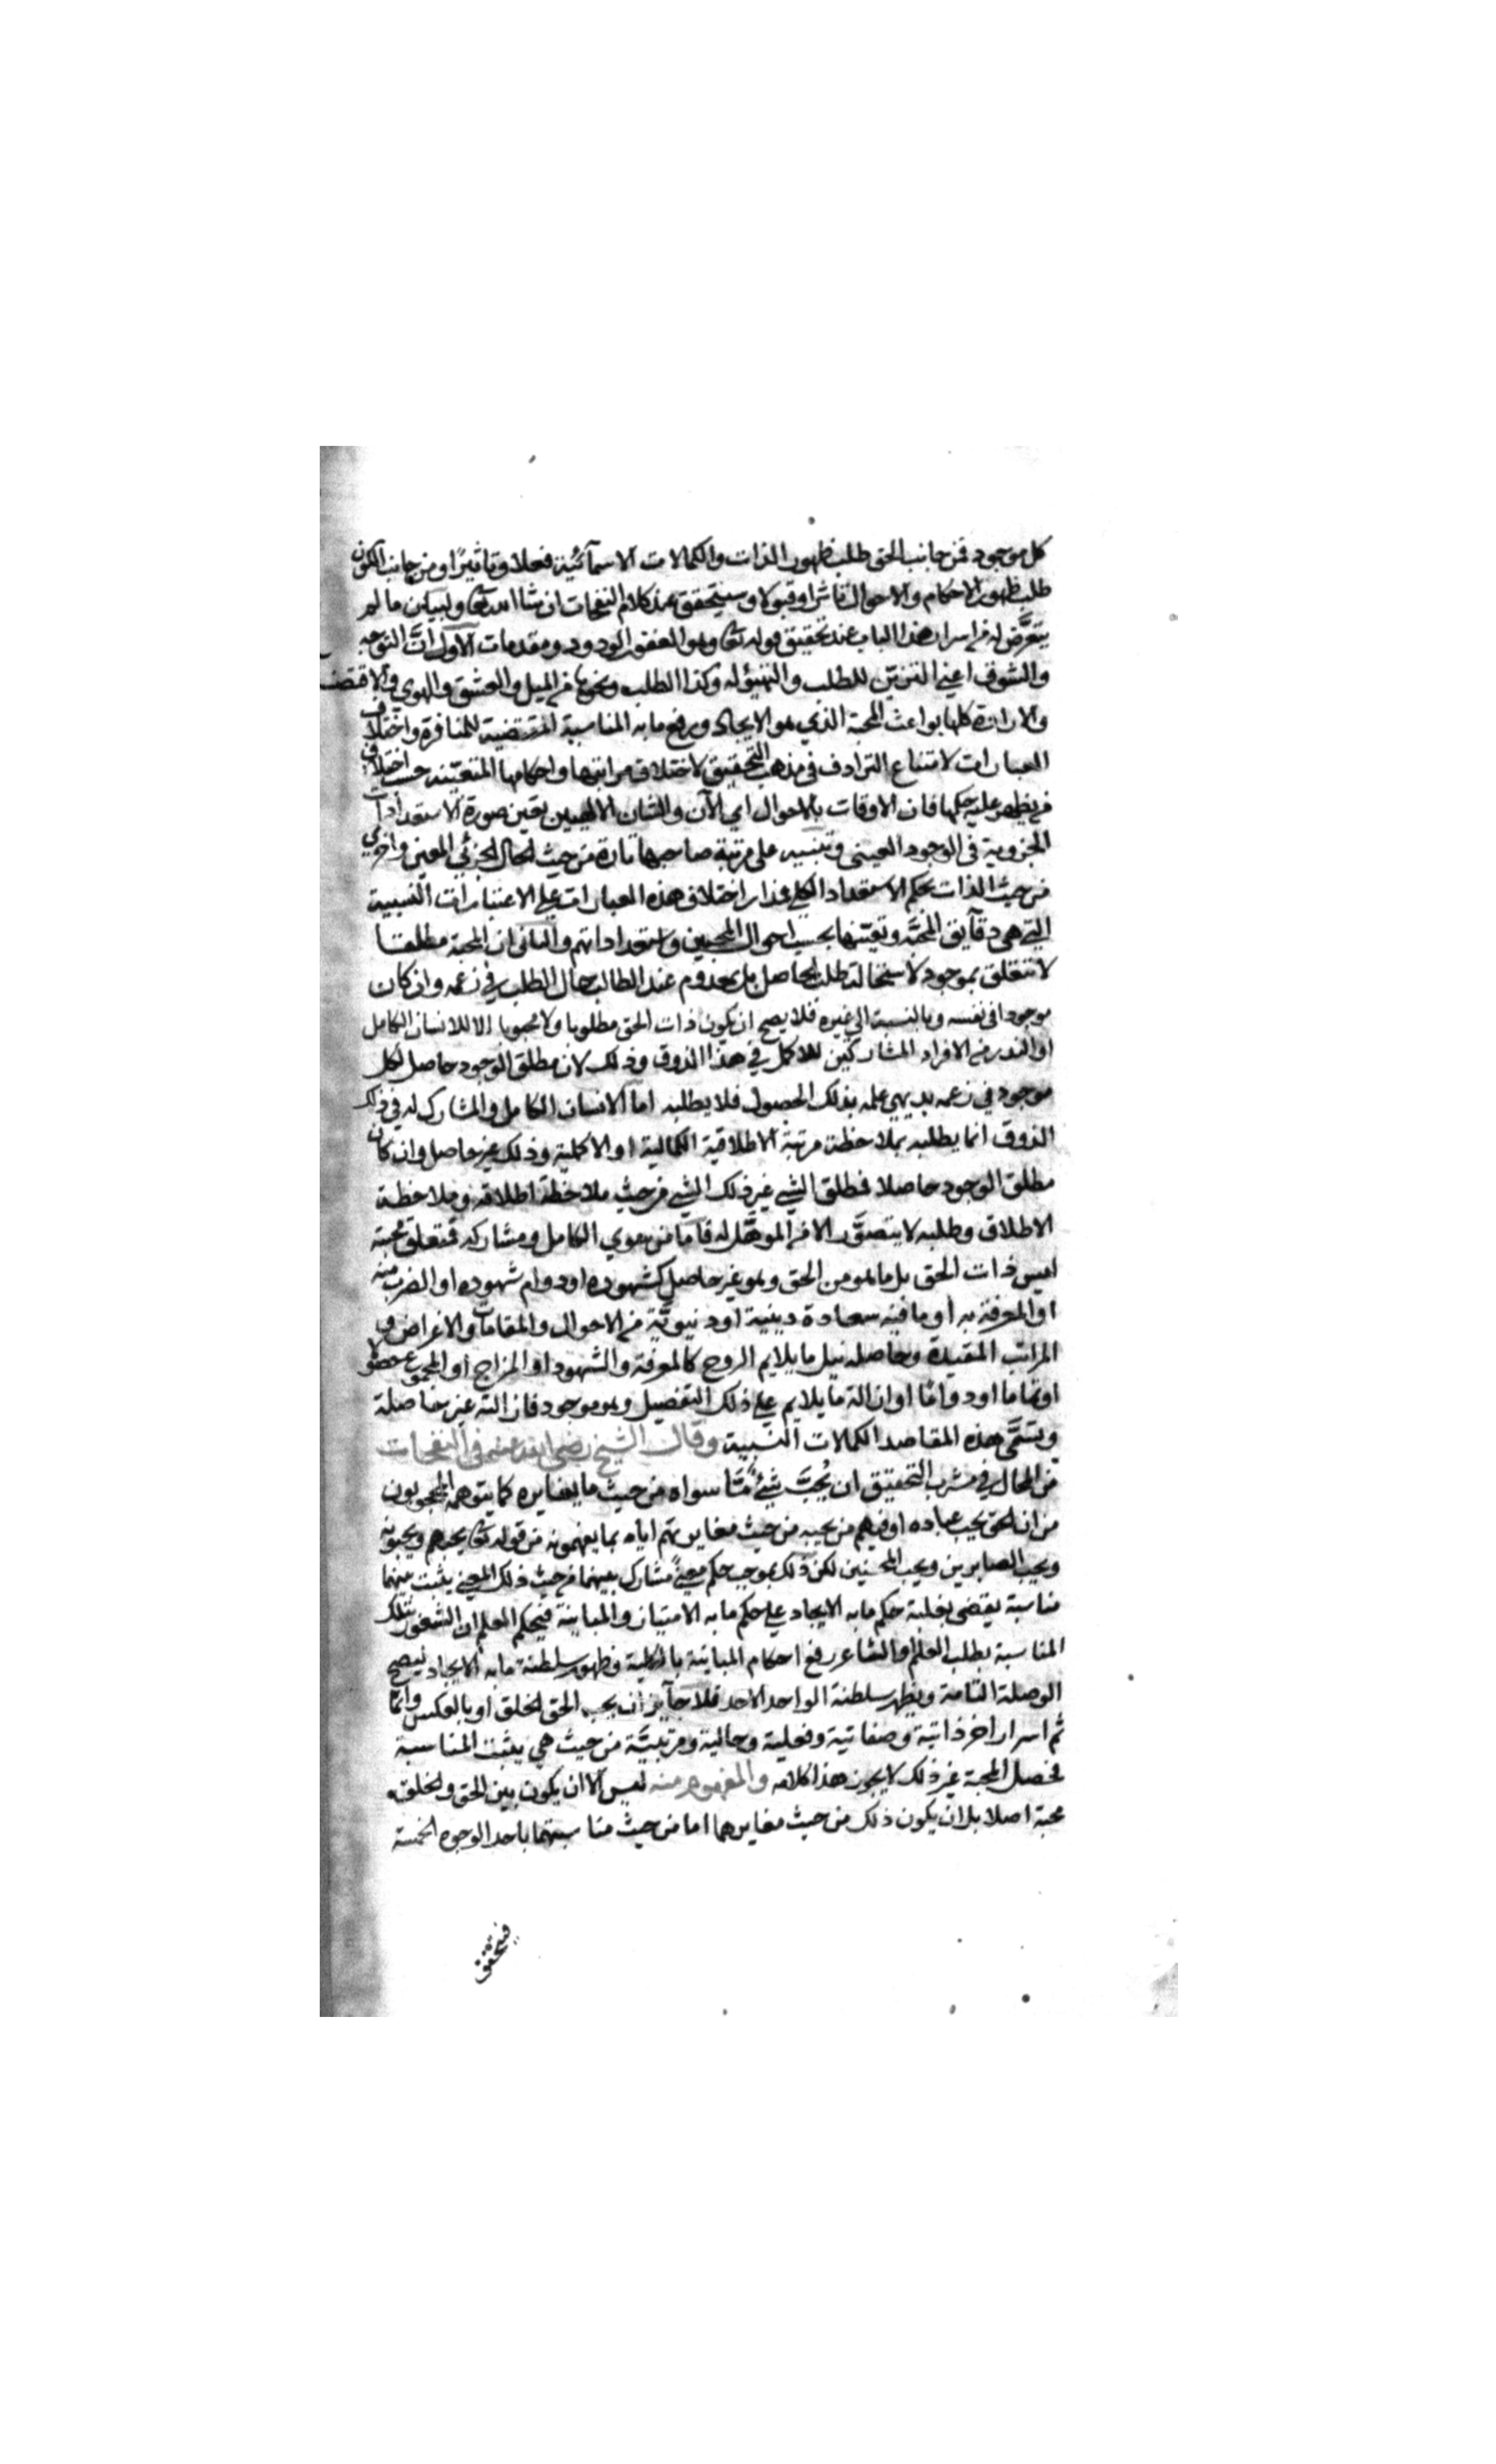 كل موجود فمن جانب الحق طلب ظهور الذات والكمالات الاسمآئية فعلا وتاثيرًا ومن جانب الكون
طلب ظهور الاحكام والاحوال تاثرا وقبولا وسيتحقق عند كلام النفحات ان شا الله تعالى ولبيان ما لم
يتعرَّض له من اسرار هذا الباب عند تحقيق قوله تعالى وهو الغفور الودود ومقدمات الاول انَّ التوجه
والتشوف اعني التزين للطلب والتهيؤ له وكذا الطلب ونحوها من الميل والعشق والهوي والاقتضا
والارادة كلها بواعث المحبة الذي هو الايجاد ورفع ما به المناسبة المقتضية للمنافرة واختلاف
العبارات لامتناع الترادف في مذهب التحقيق لاختلاف مراتبها واحكامها المتعينة حسب اختلاف
من يظهر عليه حكمها فان الاوقات بالاحوال اي الآن والشان الالهيين يعين صورة الاستعدادات
الجزوية في الوجود العيني وتنسيه على مرتبة صاحبها تارة من حيث الحال الجزئي المعين واخري
من حيث الذات بحكم الاستعداد الكلي فدار اختلاف هذه العبارات علي الاعتبارات النسبية
التي هي دقآيق المحبَّة وتعيّنها بحسب احوال المحبين واستعداداتهم والثاني ان المحبة مطلقا
لا تتعلق بموجود لاستحالة طلب الحاصل بل بمعدوم عند الطالب حال الطلب في زعمه وان كان
موجودا في نفسه وبالنسبة الي غيره فلا يصح ان يكون ذات الحق مطلوبا ولا محبوبا الا للانسان الكامل
او الندر من الافراد المشاركين للاكمل في هذا الذوق وذلك لان مطلق الوجود حاصل لكل
موجود في زعمه بديهي علمه بذلك الحصول فلا يطلبه اما الانسان الكامل والمشارك له في ذلك
الذوق انما يطلبه بملاحظة مرتبة الاطلاقية الكمالية او الاكملية وذلك غير حاصل وان كان
مطلق الوجود حاصلا فمطلق الشي غير ذلك الشي من حيث ملاحظة اطلاقه وملاحظة
الاطلاق وطلبه لا يتصوَّر الا من الموهَّل له فاما من سوي الكامل ومشاركه فمتعلق محبته
ليس ذات الحق بل ما هو من الحق وهو غير حاصل كشهوده او دوام شهوده او القرب منه
او المعرفة به أو ما فيه سعادة دينية او دنيويَّة من الاحوال والمقامات والاغراض في
المراتب المقيدة وحاصله نيل ما يلايم الروح كالمعرفة والشهود او المزاج او المجموع حصولا
او تماما او دوامًا او ازالة ما يلايم علي ذلك التفصيل وهو موجود فازالته غير حاصلة
ويسمَّى هذه المقاصد الكمالات النسبية وقال الشيخ رضي الله عنه في النفحات
من المحال في مشرب التحقيق ان يُحبَّ شيءٌ مَّا سواه من حيث ما يغايره كما يتوهمه المحجوبون
من ان الحق يحب عباده او فيهم من يحبه من حيث مغايرتهم اياه بما يفهمونه من قوله تعالى يحبهم ويحبونه
ويحب الصابرين ويحب المحسنين لكن ذلك بموجب حكم معنيً مشارك بينهما من حيث ذلك المعني يثبت بينهما
مناسبة يقضي بغلبة حكم ما به الايجاد علي حكم ما به الامتياز والمباينة فيحكم العلم ان الشعور بتلك
المناسبة يطلب العلم او الشاعر رفع احكام المباينة بالكلية وظهور سلطنة ما به الايجاد ليصح
الوصلة التامة ويظهر سلطنة الواحد الاحد فلا جآيز ان يحب الحق الخلق او بالعكس وانما
ثم اسرار اخر ذاتية وصفاتية وفعلية وحالية ومرتبيَّة من حيث هي يثبت المناسبة
فحصل المحبة غير ذلك لا يجوز هذا كلامه والمفهوم منه ليس الا ان يكون بين الحق والخلق
محبة اصلا بل ان يكون ذلك من حيث مغايرهما اما من حيث مناسبتهما باحد الوجوه الخمسة
فيتحقق